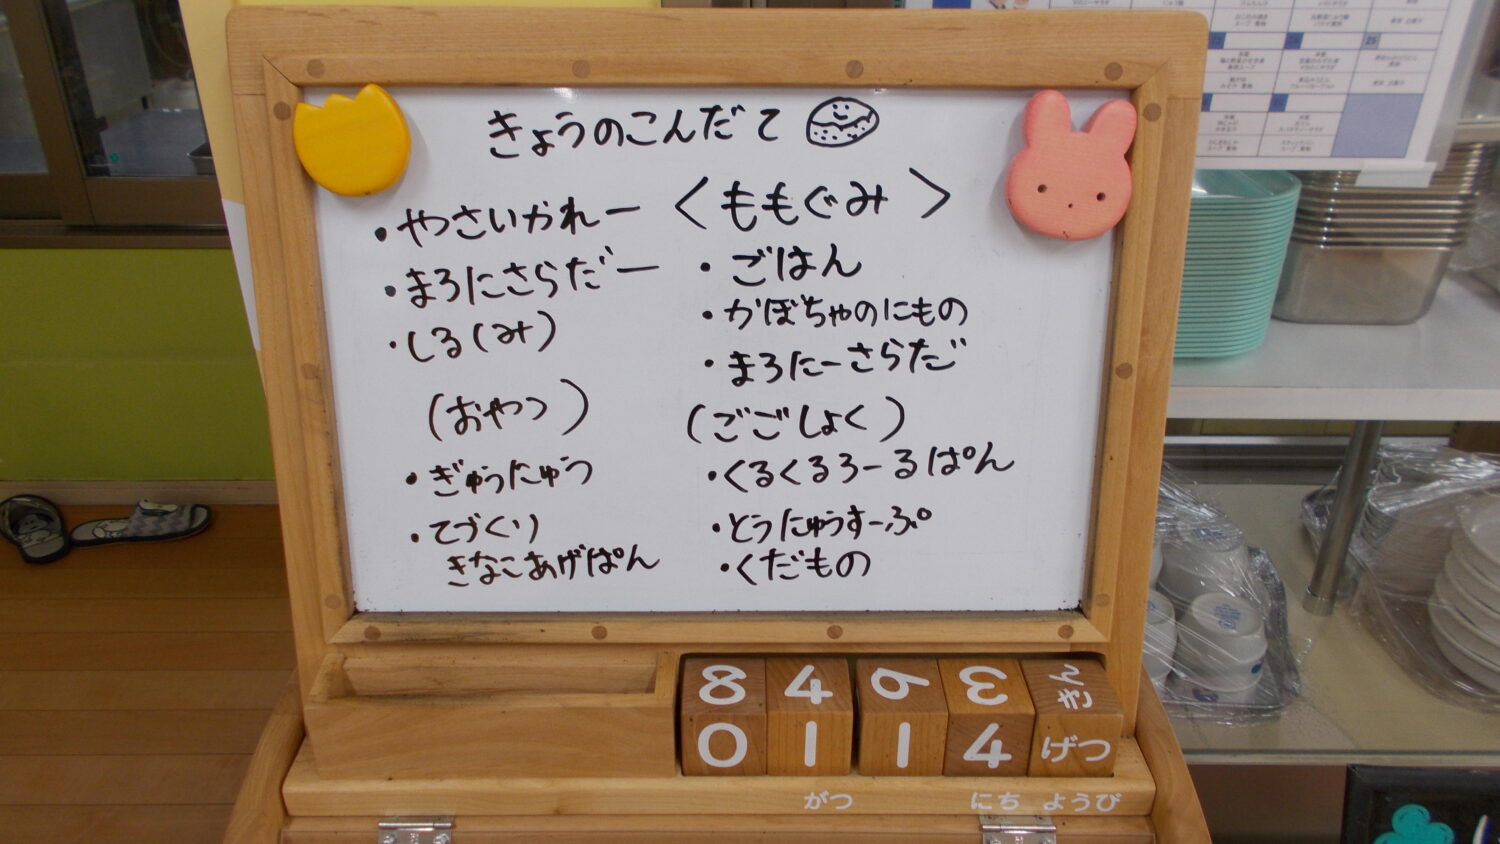 きょうのこんだて
・やさいかれー
・まろにさらだー
・しる(みそ)
(おやつ)
・ぎゅうにゅう
・てづくり
きなこあげぱん
<ももぐみ>
・ごはん
・かぼちゃのにもの
・まろにーさらだ
(ごごしょく)
・くるくるろーるぱん
・とうにゅうすーぷ
・くだもの
8 4 6 3 きん
0 1 1 4 げつ
がつ にち ようび